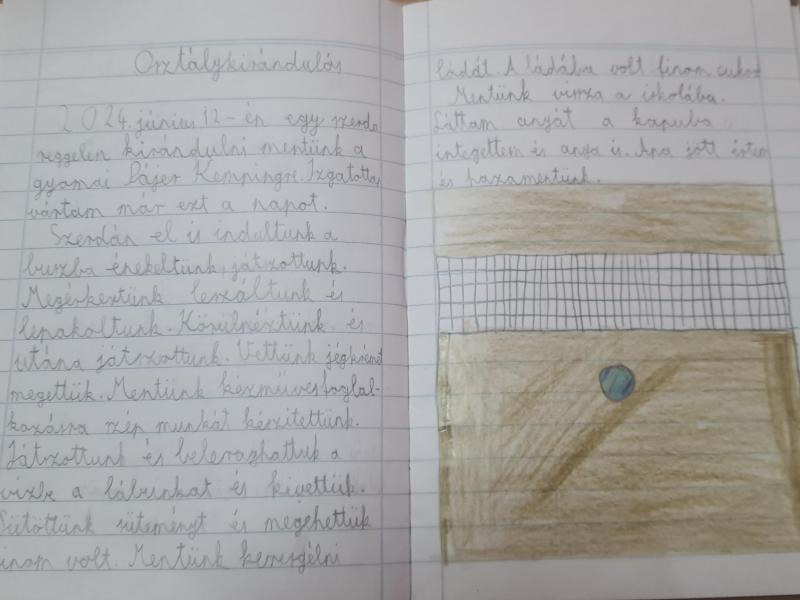 Osztálykirándulás
2024. június 12-én egy szerda
reggelen kirándulni mentünk a
gyomai Pájer Kempingre. Izgatottan
vártam már ezt a napot.
Szerdán el is indultunk a
buszba énekeltünk, játszottunk.
Megérkeztünk leszáltunk és
lepakoltunk. Körülnéztünk és
utána játszottunk. Vettünk jégkrémet
megettük. Mentünk kézművesfoglal-
kozásra szép munkát készítettünk.
Játszottunk és beleraghattuk a
vízbe a lábunkat és kivettük.
Sütöttünk süteményt és megehettük
finom volt. Mentünk keresgélni
ládát. A ládába volt finom cukor
Mentünk vissza a iskolába.
Láttam anyát a kapuba
integettem és anya is. Apa jött értem
és hazamentünk.